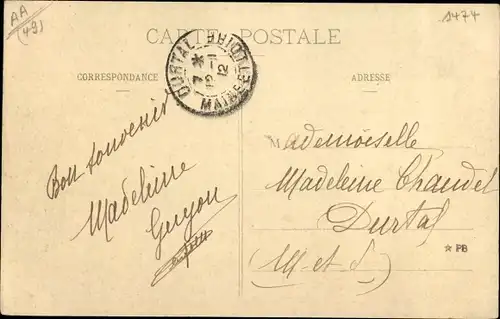 AA
(49)
1474
CARTE POSTALE
DURTAL
MAINE
12
CORRESPONDANCE
ADRESSE
Bon souvenir
Madeleine
Guyon
Mademoiselle
Madeleine Chaudet
Durtal
(M-et-L)
* PB